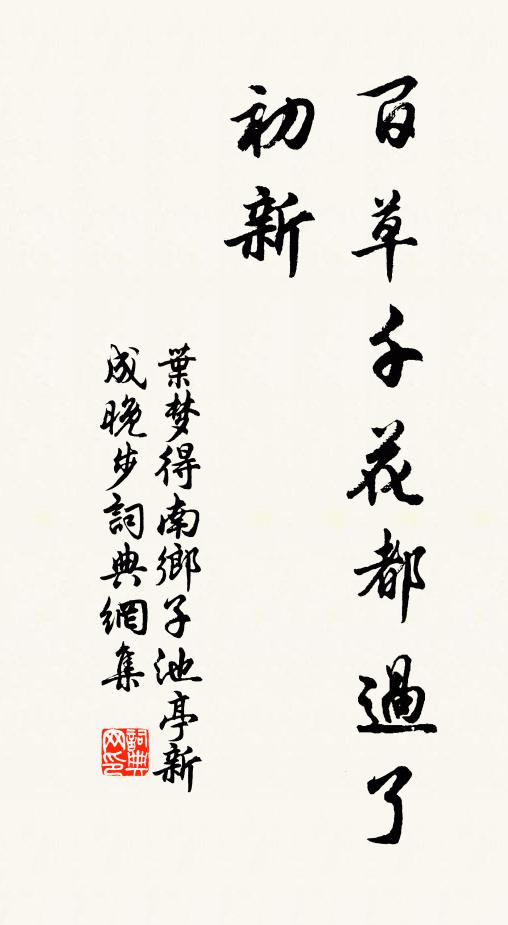 百草千花都過了
初新
葉梦得南鄉子池亭新
成晚步詞典網集
詞典网印